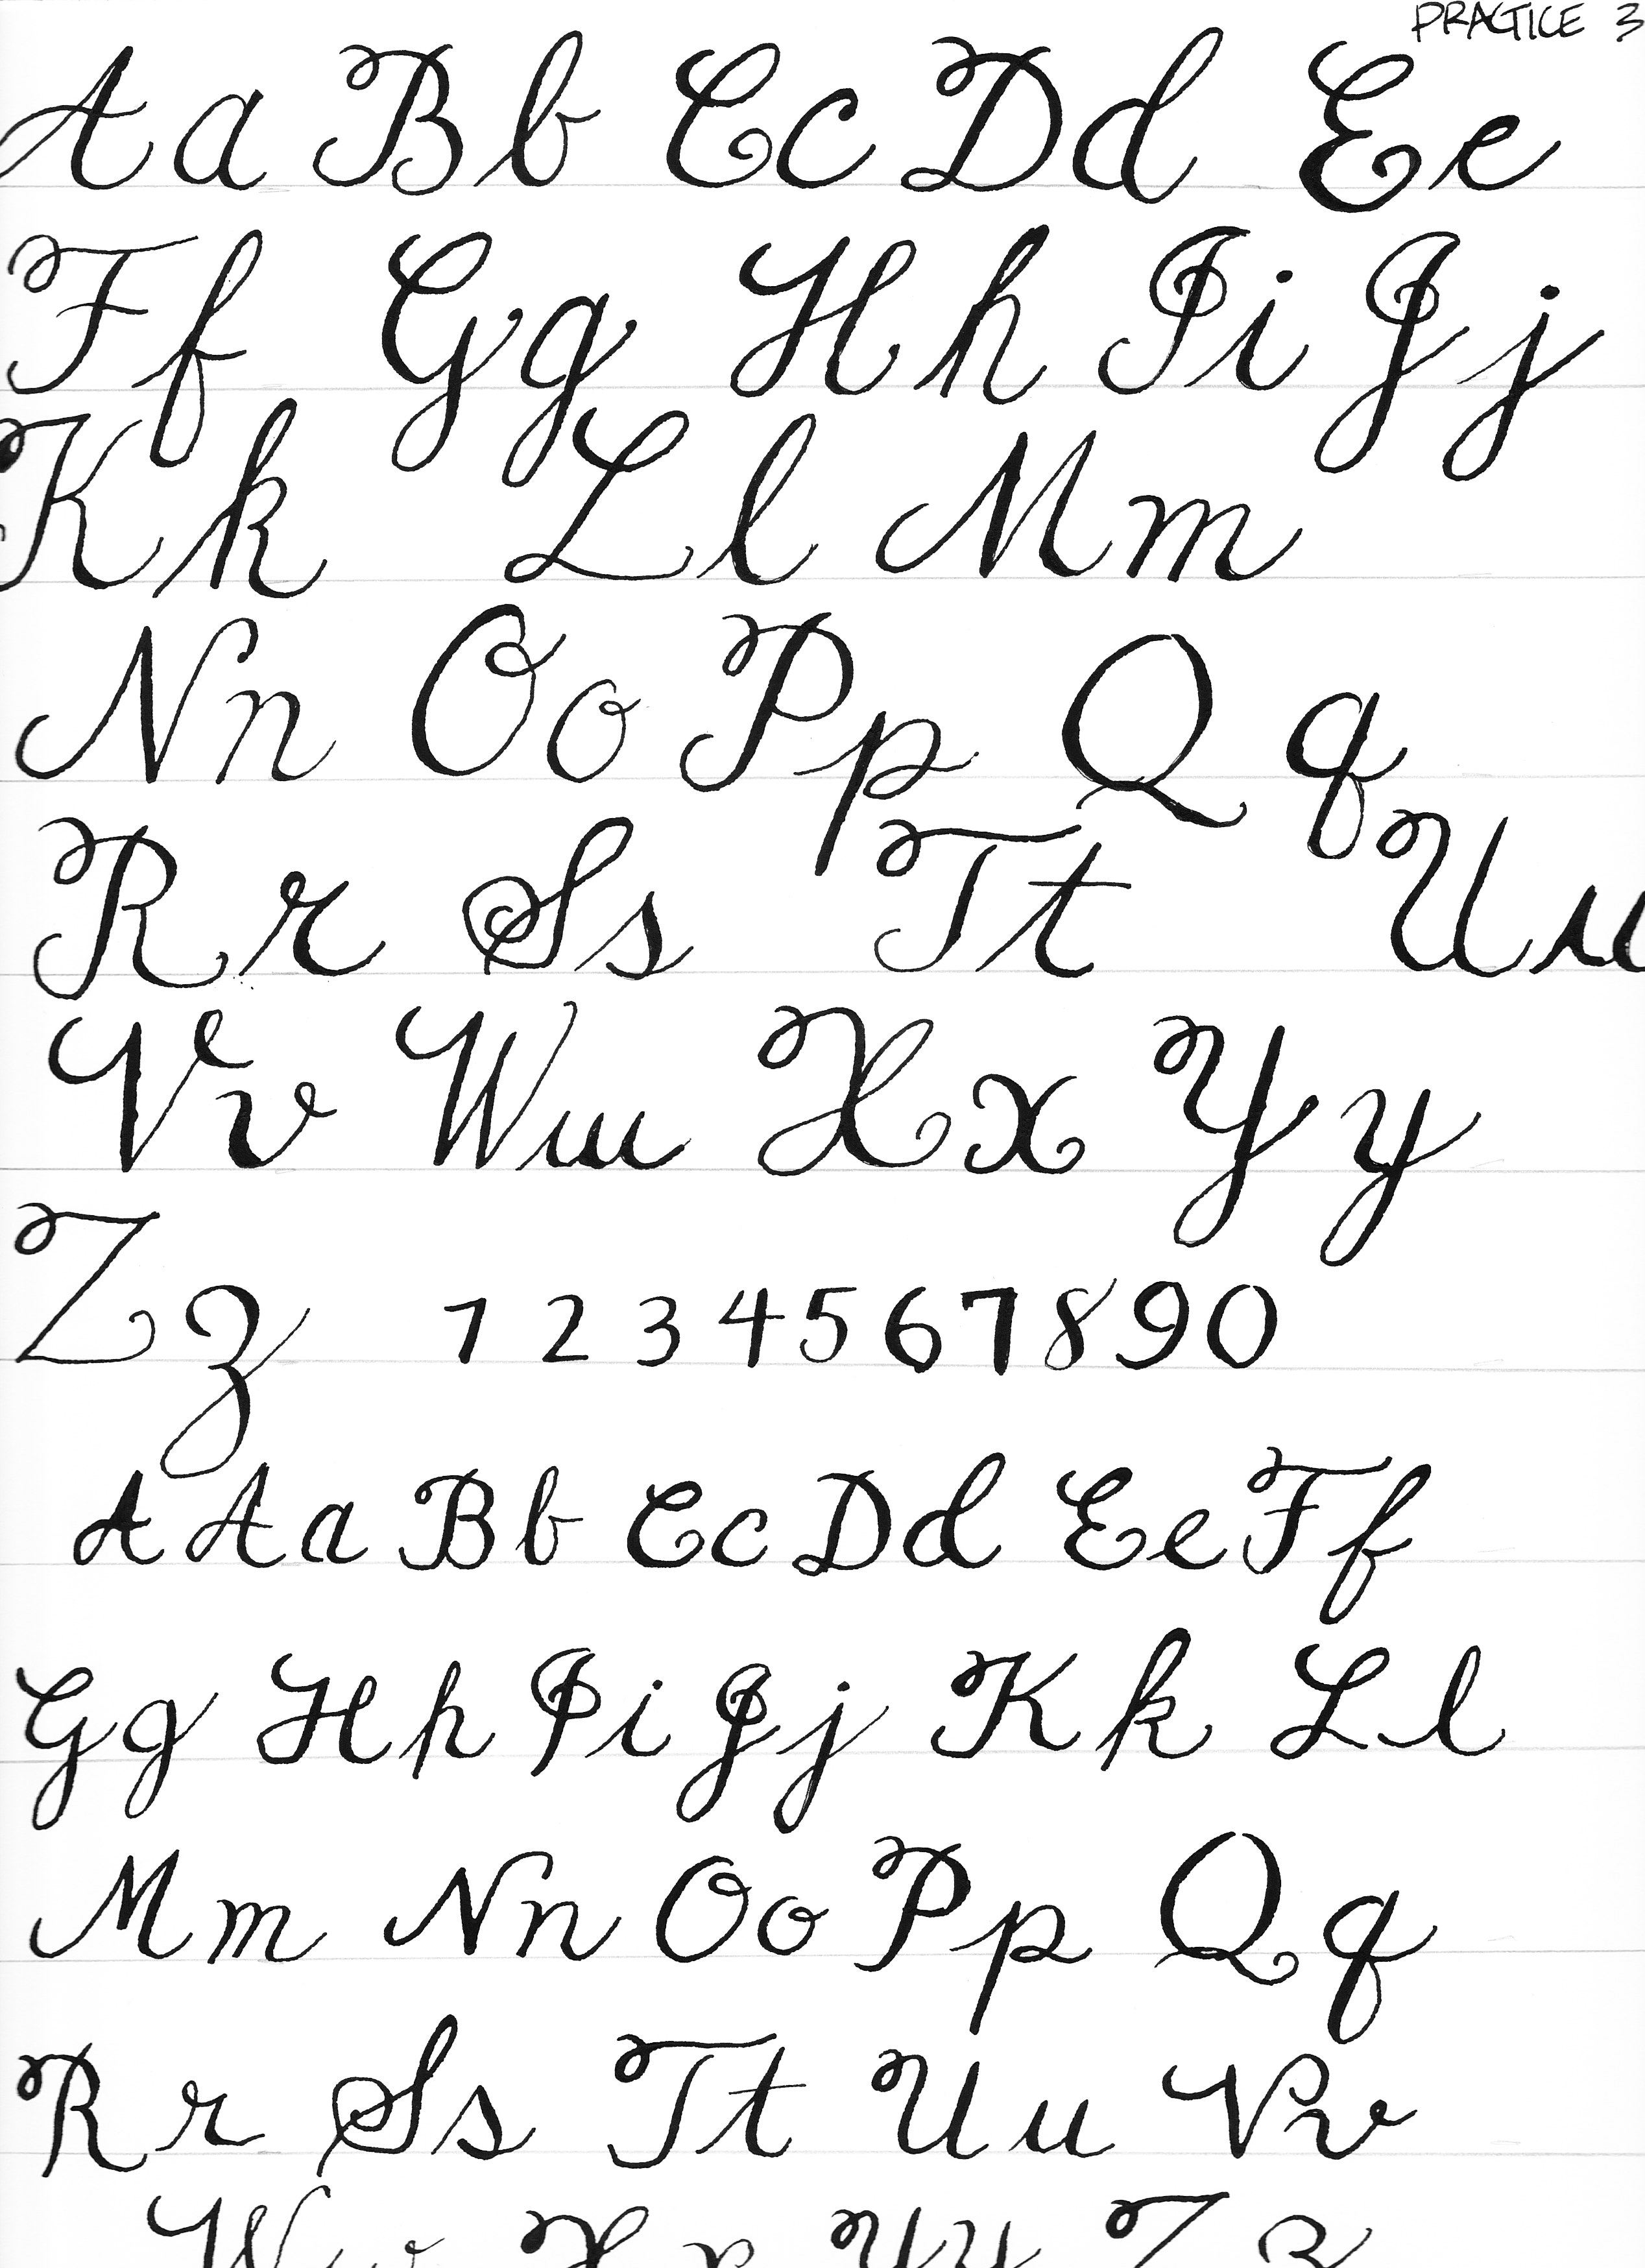 PRACTICE 3
A a B b C c D d E e
F f G g H h I i J j
K k L l M m
N n O o P p Q q
R r S s T t U u
V v W w X x Y y
Z z 1 2 3 4 5 6 7 8 9 0
A A a B b C c D d E e F f
G g H h I i J j K k L l
M m N n O o P p Q q
R r S s T t U u V v
W w X x Y y Z z